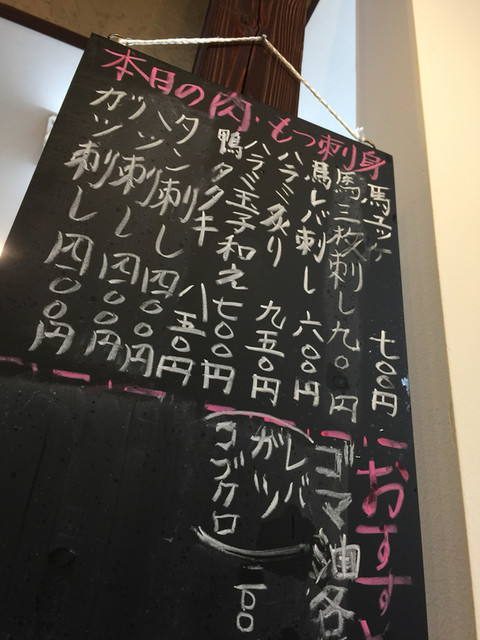 本日の肉・もつ刺身
馬ユッケ 七〇〇円
馬三枚刺し 九〇〇円
馬レバ刺し 六〇〇円
ハラミ炙り 九五〇円
ハラミ玉子和え 七〇〇円
鴨タタキ 八五〇円
タン刺し 四〇〇円
ハツ刺し 四〇〇円
ガツ刺し 四〇〇円
おすす
ゴマ油各
(レバ
ガツ
コブクロ)